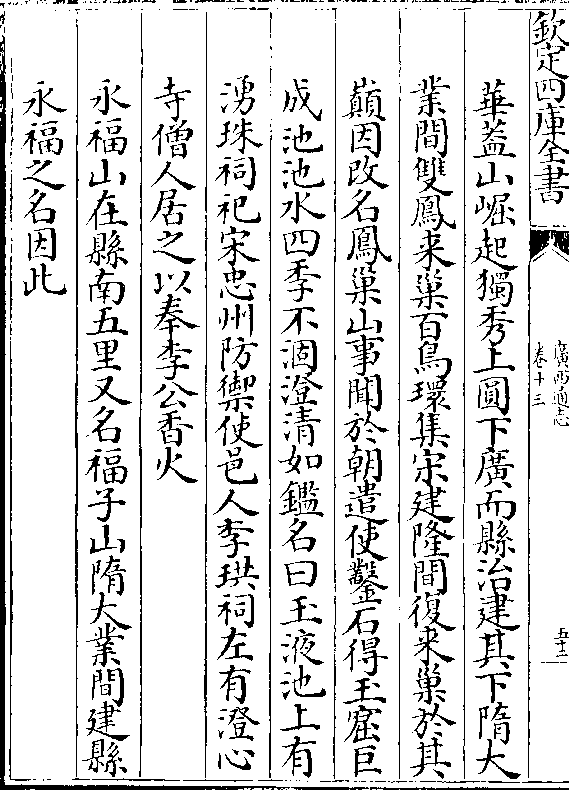 欽定四庫全書
廣西通志
卷十三
五十二
華蓋山崛起獨秀上圓下廣而縣治建其下隋大
業間雙鳳来巢百鳥環集宋建隆間復来巢於其
巔因改名鳳巢山事聞於朝遣使鑿石得玉窟巨
成池池水四季不涸澄清如鑑名曰玉液池上有
湧珠祠祀宋忠州防禦使邑人李珙祠左有澄心
寺僧人居之以奉李公香火
永福山在縣南五里又名福子山隋大業間建縣
永福之名因此